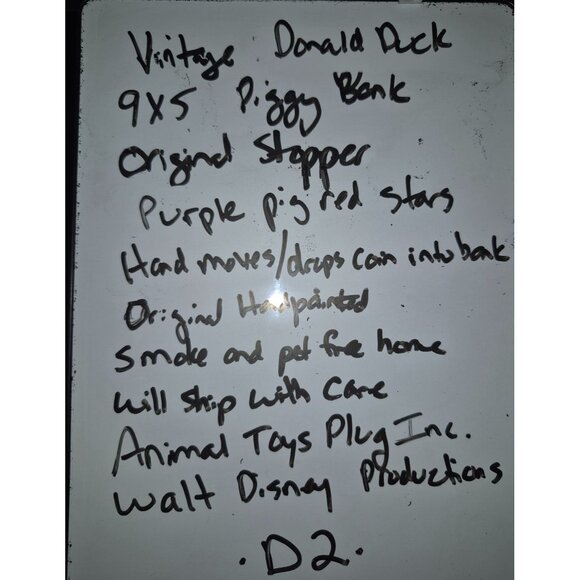 Vintage Donald Duck
9X5 Piggy Bank
Original Stopper
Purple pig red stars
Hand moves/drops coin into bank
Original Handpainted
Smoke and pet free home
Will ship with care
Animal Toys Plug Inc.
Walt Disney Productions
.D2.